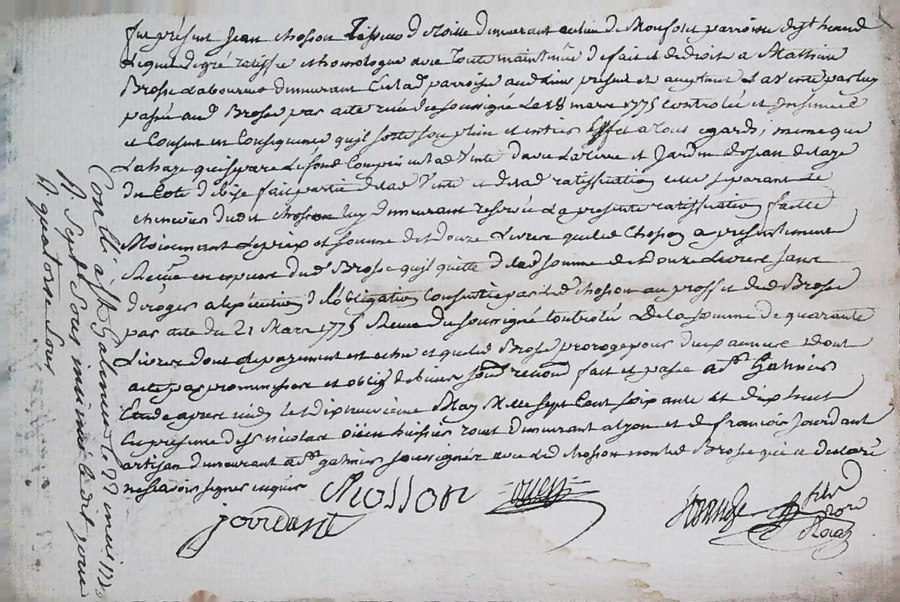 fut présent Jean Chosson Tisseur d'etoille demeurant au lieu de parroisse de St heand
Lequel de gré ratiffie et homologue avec toute maintenue de fait et de droit a Mathieu
Brosse Laboureur demeurant en lad parroisse aud lieu présent et acceptant La Vente par luy
passée aud Brosse par acte reçu du soussigné Le 18 mars 1775 controllée et Insinuée
et Consent en Conséquence qu'il sorte son plein et entier Effet a tous egards; meme que
La haye qui separe Le fond Compris en lad Vente d'avec La terre et Jardin de Jean
du Coté de bise fait partie de lad Vente et de lad ratiffication celle separant le
chenevier dudit Chosson luy demeurant reservée La presente ratiffication faitte
Moiennant Le prix et somme de Douze Livres que led Chosson a présentement
Recue en especes dud Brosse qu'il quitte de lad somme de Douze Livres sans
deroger a l'exécution de l'obligation Consentie par led Chosson au proffit dud Brosse
par acte du 21 Mars 1775 Recue du soussigné Controlé De la somme de quarante
Livres dont le payement est echu et que led Brosse proroge pour dix années Dont
acte par promesses et oblig de biens soum renon fait et passé a St Galmier
Etude après midy le Dix neuvième May Mille sept Cent soixante et dix huit
En presence de Sr nicolas huissier roial demeurant a Lyon et de francois Jourdant
artisan demeurant a St galmier soussignés avec led Chosson non led Brosse qui a declaré
ne scavoir signer enquis
Chosson
jourdant
Controllé a St Galmier le 22 mai 1778
R Sept Sous insinué led jour
R quatorze sous